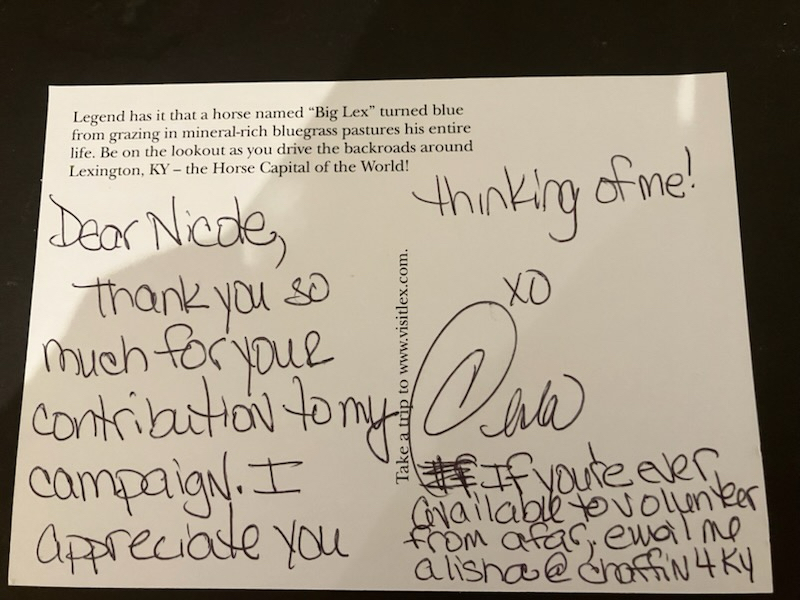 Legend has it that a horse named “Big Lex” turned blue
from grazing in mineral-rich bluegrass pastures his entire
life. Be on the lookout as you drive the backroads around
Lexington, KY – the Horse Capital of the World!
Dear Nicole,
Thank you so
much for your
contribution to my
campaign. I
appreciate you
thinking of me!
XO
If you're ever
available to volunteer
from afar, email me
alisha@chaffin4KY
Take a trip to www.visitlex.com.